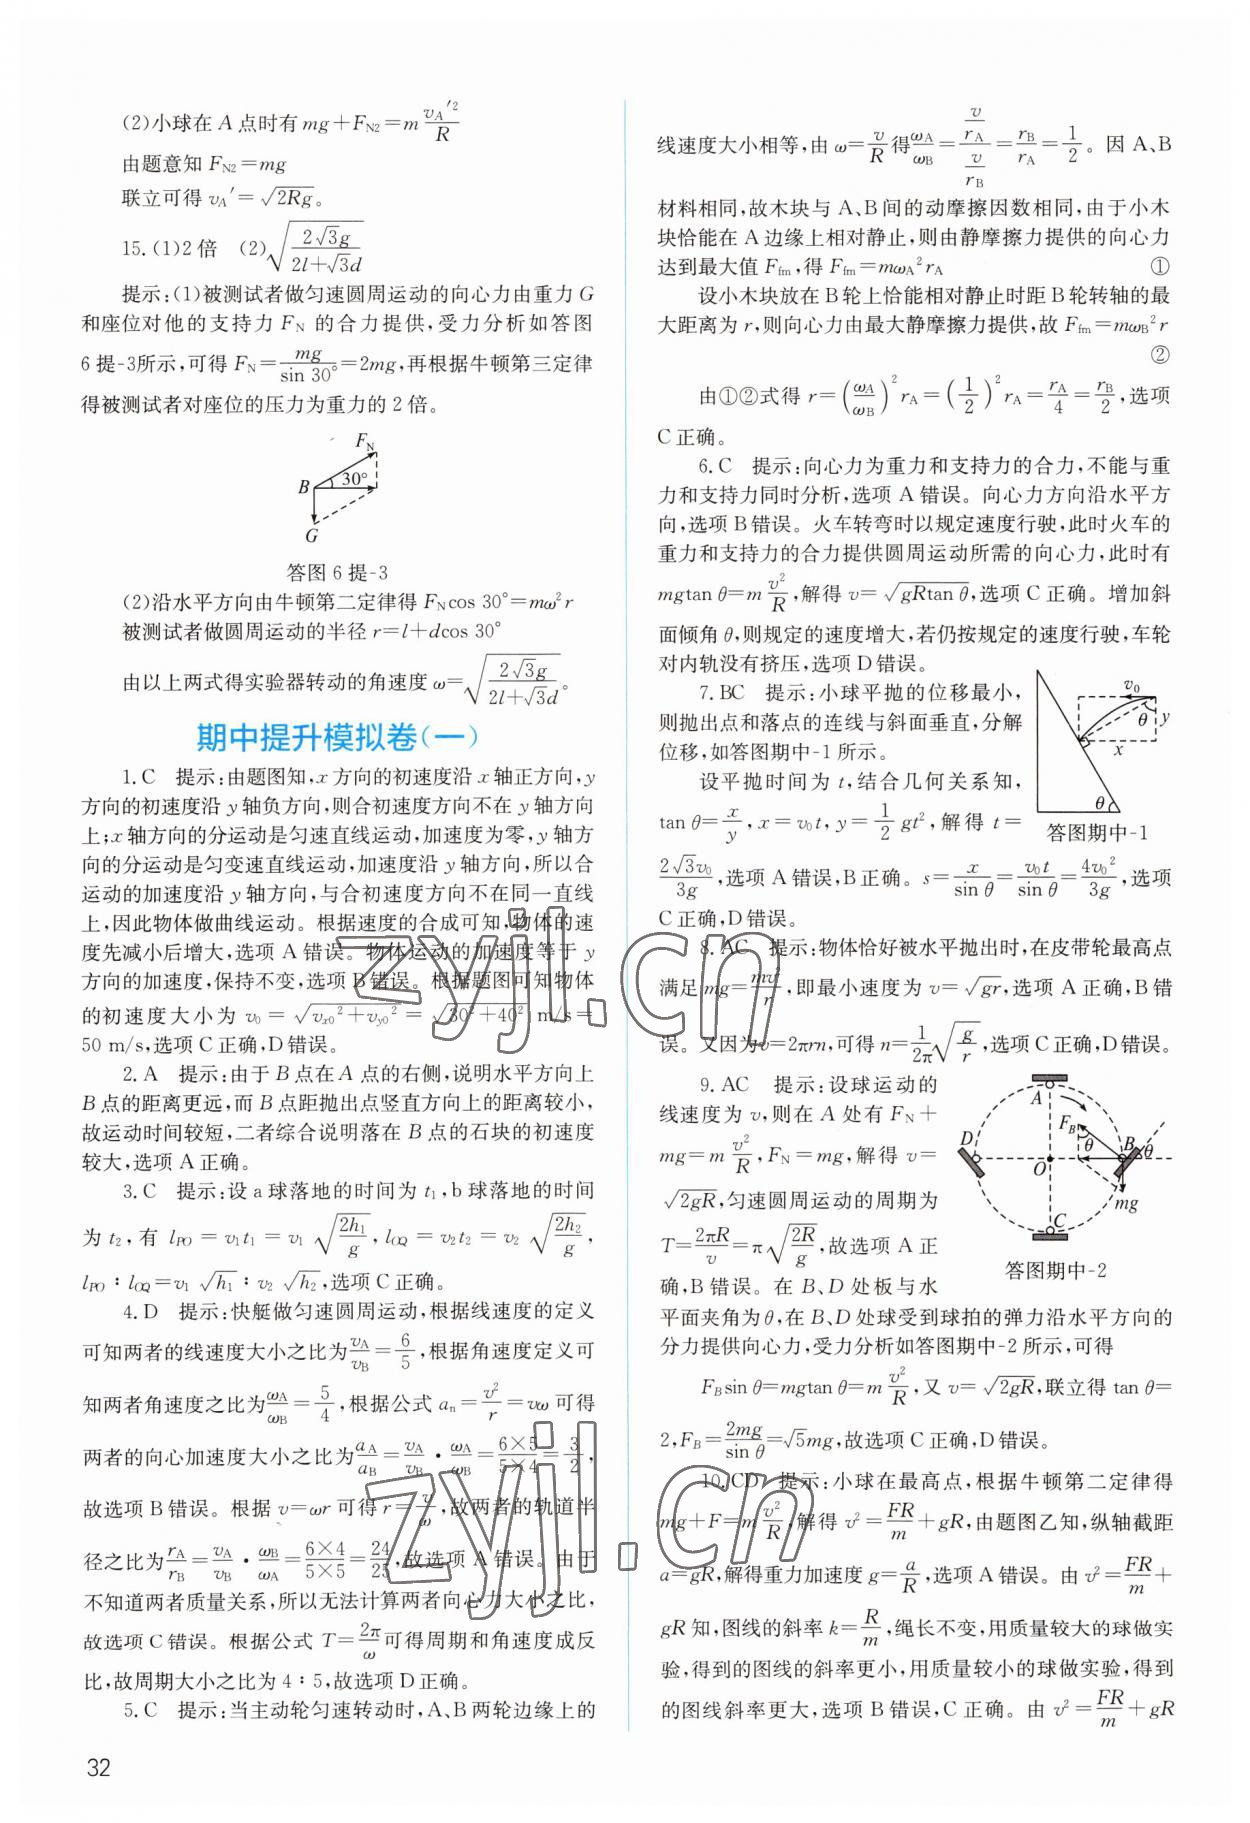 (2)小球在 A 点时有 mg+F_N2=m v_A′²/R
由题意知 F_N2=mg
联立可得 v_A′=√(2Rg)。
15.(1)2倍 (2)√(2√3g/(2l+√3d))
提示:(1)被测试者做匀速圆周运动的向心力由重力 G
和座位对他的支持力 F_N 的合力提供,受力分析如答图
6提-3所示,可得 F_N=mg/sin 30°=2mg,再根据牛顿第三定律
得被测试者对座位的压力为重力的 2 倍。
F_N
B 30°
G
答图 6 提-3
(2)沿水平方向由牛顿第二定律得 F_N cos 30°=mω²r
被测试者做圆周运动的半径 r=l+dcos 30°
由以上两式得实验器转动的角速度 ω=√(2√3g/(2l+√3d))。
期中提升模拟卷(一)
1.C 提示:由题图知,x 方向的初速度沿 x 轴正方向,y
方向的初速度沿 y 轴负方向,则合初速度方向不在 y 轴方向
上;x 轴方向的分运动是匀速直线运动,加速度为零,y 轴方
向的分运动是匀变速直线运动,加速度沿 y 轴方向,所以合
运动的加速度沿 y 轴方向,与合初速度方向不在同一直线
上,因此物体做曲线运动。根据速度的合成可知,物体的速
度先减小后增大,选项 A 错误。物体运动的加速度等于 y
方向的加速度,保持不变,选项 B 错误。根据题图可知物体
的初速度大小为 v₀=√(v_x0²+v_y0²)=√(30²+40²) m/s=
50 m/s,选项 C 正确,D 错误。
2.A 提示:由于 B 点在 A 点的右侧,说明水平方向上
B 点的距离更远,而 B 点距抛出点竖直方向上的距离较小,
故运动时间较短,二者综合说明落在 B 点的石块的初速度
较大,选项 A 正确。
3.C 提示:设 a 球落地的时间为 t₁,b 球落地的时间
为 t₂,有 l_PO=v₁t₁=v₁√(2h₁/g),l_OQ=v₂t₂=v₂√(2h₂/g),
l_PO∶l_OQ=v₁√h₁∶v₂√h₂,选项 C 正确。
4.D 提示:快艇做匀速圆周运动,根据线速度的定义
可知两者的线速度大小之比为v_A/v_B=6/5,根据角速度定义可
知两者角速度之比为ω_A/ω_B=5/4,根据公式 a_n=v²/r=vω 可得
两者的向心加速度大小之比为a_A/a_B=v_A/v_B·ω_A/ω_B=(6×5)/(5×4)=3/2,
故选项 B 错误。根据 v=ωr 可得 r=v/ω,故两者的轨道半
径之比为r_A/r_B=v_A/v_B·ω_B/ω_A=(6×4)/(5×5)=24/25,故选项 A 错误。由于
不知道两者质量关系,所以无法计算两者向心力大小之比,
故选项 C 错误。根据公式 T=2π/ω可得周期和角速度成反
比,故周期大小之比为 4∶5,故选项 D 正确。
5.C 提示:当主动轮匀速转动时,A、B 两轮边缘上的
线速度大小相等,由 ω=v/R得ω_A/ω_B=(v/r_A)/(v/r_B)=r_B/r_A=1/2。因 A、B
材料相同,故木块与 A、B 间的动摩擦因数相同,由于小木
块恰能在 A 边缘上相对静止,则由静摩擦力提供的向心力
达到最大值 F_fm,得 F_fm=mω_A²r_A ①
设小木块放在 B 轮上恰能相对静止时距 B 轮转轴的最
大距离为 r,则向心力由最大静摩擦力提供,故 F_fm=mω_B²r
②
由①②式得 r=(ω_A/ω_B)²r_A=(1/2)²r_A=r_A/4=r_B/2,选项
C 正确。
6.C 提示:向心力为重力和支持力的合力,不能与重
力和支持力同时分析,选项 A 错误。向心力方向沿水平方
向,选项 B 错误。火车转弯时以规定速度行驶,此时火车的
重力和支持力的合力提供圆周运动所需的向心力,此时有
mgtan θ=m v²/R,解得 v=√(gRtan θ),选项 C 正确。增加斜
面倾角 θ,则规定的速度增大,若仍按规定的速度行驶,车轮
对内轨没有挤压,选项 D 错误。
7.BC 提示:小球平抛的位移最小,
则抛出点和落点的连线与斜面垂直,分解
位移,如答图期中-1 所示。
设平抛时间为 t,结合几何关系知,
tan θ=x/y,x=v₀t,y=1/2 gt²,解得 t=
v₀
θ y
x
θ
答图期中-1
2√3v₀/3g,选项 A 错误,B 正确。s=x/sin θ=v₀t/sin θ=4v₀²/3g,选项
C 正确,D 错误。
8.AC 提示:物体恰好被水平抛出时,在皮带轮最高点
满足 mg=mv²/r,即最小速度为 v=√(gr),选项 A 正确,B 错
误。又因为 v=2πrn,可得 n=1/2π √(g/r),选项 C 正确,D 错误。
9.AC 提示:设球运动的
线速度为 v,则在 A 处有 F_N+
mg=m v²/R,F_N=mg,解得 v=
√(2gR),匀速圆周运动的周期为
T=2πR/v=π√(2R/g),故选项 A 正
确,B 错误。在 B、D 处板与水
A
F_B
D θ B θ
O
mg
C
答图期中-2
平面夹角为 θ,在 B、D 处球受到球拍的弹力沿水平方向的
分力提供向心力,受力分析如答图期中-2 所示,可得
F_B sin θ=mgtan θ=m v²/R,又 v=√(2gR),联立得 tan θ=
2,F_B=2mg/sin θ=√5mg,故选项 C 正确,D 错误。
10.CD 提示:小球在最高点,根据牛顿第二定律得
mg+F=m v²/R,解得 v²=FR/m+gR,由题图乙知,纵轴截距
a=gR,解得重力加速度 g=a/R,选项 A 错误。由 v²=FR/m+
gR 知,图线的斜率 k=R/m,绳长不变,用质量较大的球做实
验,得到的图线的斜率更小,用质量较小的球做实验,得到
的图线斜率更大,选项 B 错误,C 正确。由 v²=FR/m+gR
32
zyjl.cn
zyjl.cn